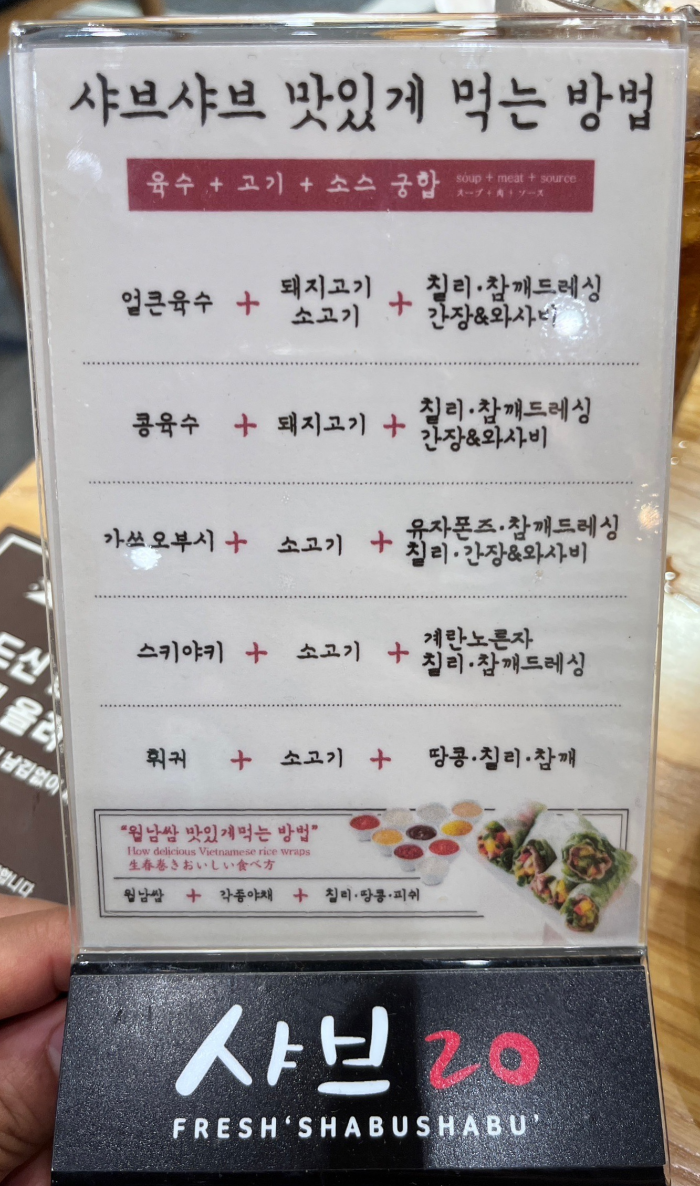 샤브샤브 맛있게 먹는 방법
육수 + 고기 + 소스 궁합
soup + meat + source
スープ + 肉 + ソース
얼큰육수 + 돼지고기 소고기 + 칠리·참깨드레싱 간장&와사비
콩육수 + 돼지고기 + 칠리·참깨드레싱 간장&와사비
가쓰오부시 + 소고기 + 유자폰즈·참깨드레싱 칠리·간장&와사비
스키야키 + 소고기 + 계란노른자 칠리·참깨드레싱
훠궈 + 소고기 + 땅콩·칠리·참깨
"월남쌈 맛있게먹는 방법"
How delicious Vietnamese rice wraps
生春巻きおいしい食べ方
월남쌈 + 각종야채 + 칠리·땅콩·피쉬
샤브20
FRESH'SHABUSHABU'